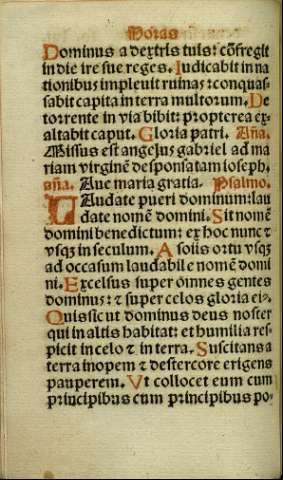 Horas
Dominus a dextris tuis: cõfregit
in die ire sue reges. Iudicabit in na
tionibus impleuit ruinas: conquas-
sabit capita in terra multorum. De
torrente in via bibit: propterea ex-
altabit caput. Gloria patri. Aña.
Missus est angelus gabriel ad ma
riam virginẽ desponsatam ioseph.
aña. Aue maria gratia. Psalmo.
LAudate pueri dominum: lau
date nomẽ domini. Sit nomẽ
domini benedictum: ex hoc nunc ⁊
vsqꝫ in seculum. A solis ortu vsqꝫ
ad occasum laudabile nomẽ domi
ni. Excelsus super õmnes gentes
dominus: ⁊ super celos gloria eiꝰ.
Quis sicut dominus deus noster
qui in altis habitat: et humilia res-
picit in celo ⁊ in terra. Suscitans a
terra inopem ⁊ de stercore erigens
pauperem. Ut collocet eum cum
principibus cum principibus po-